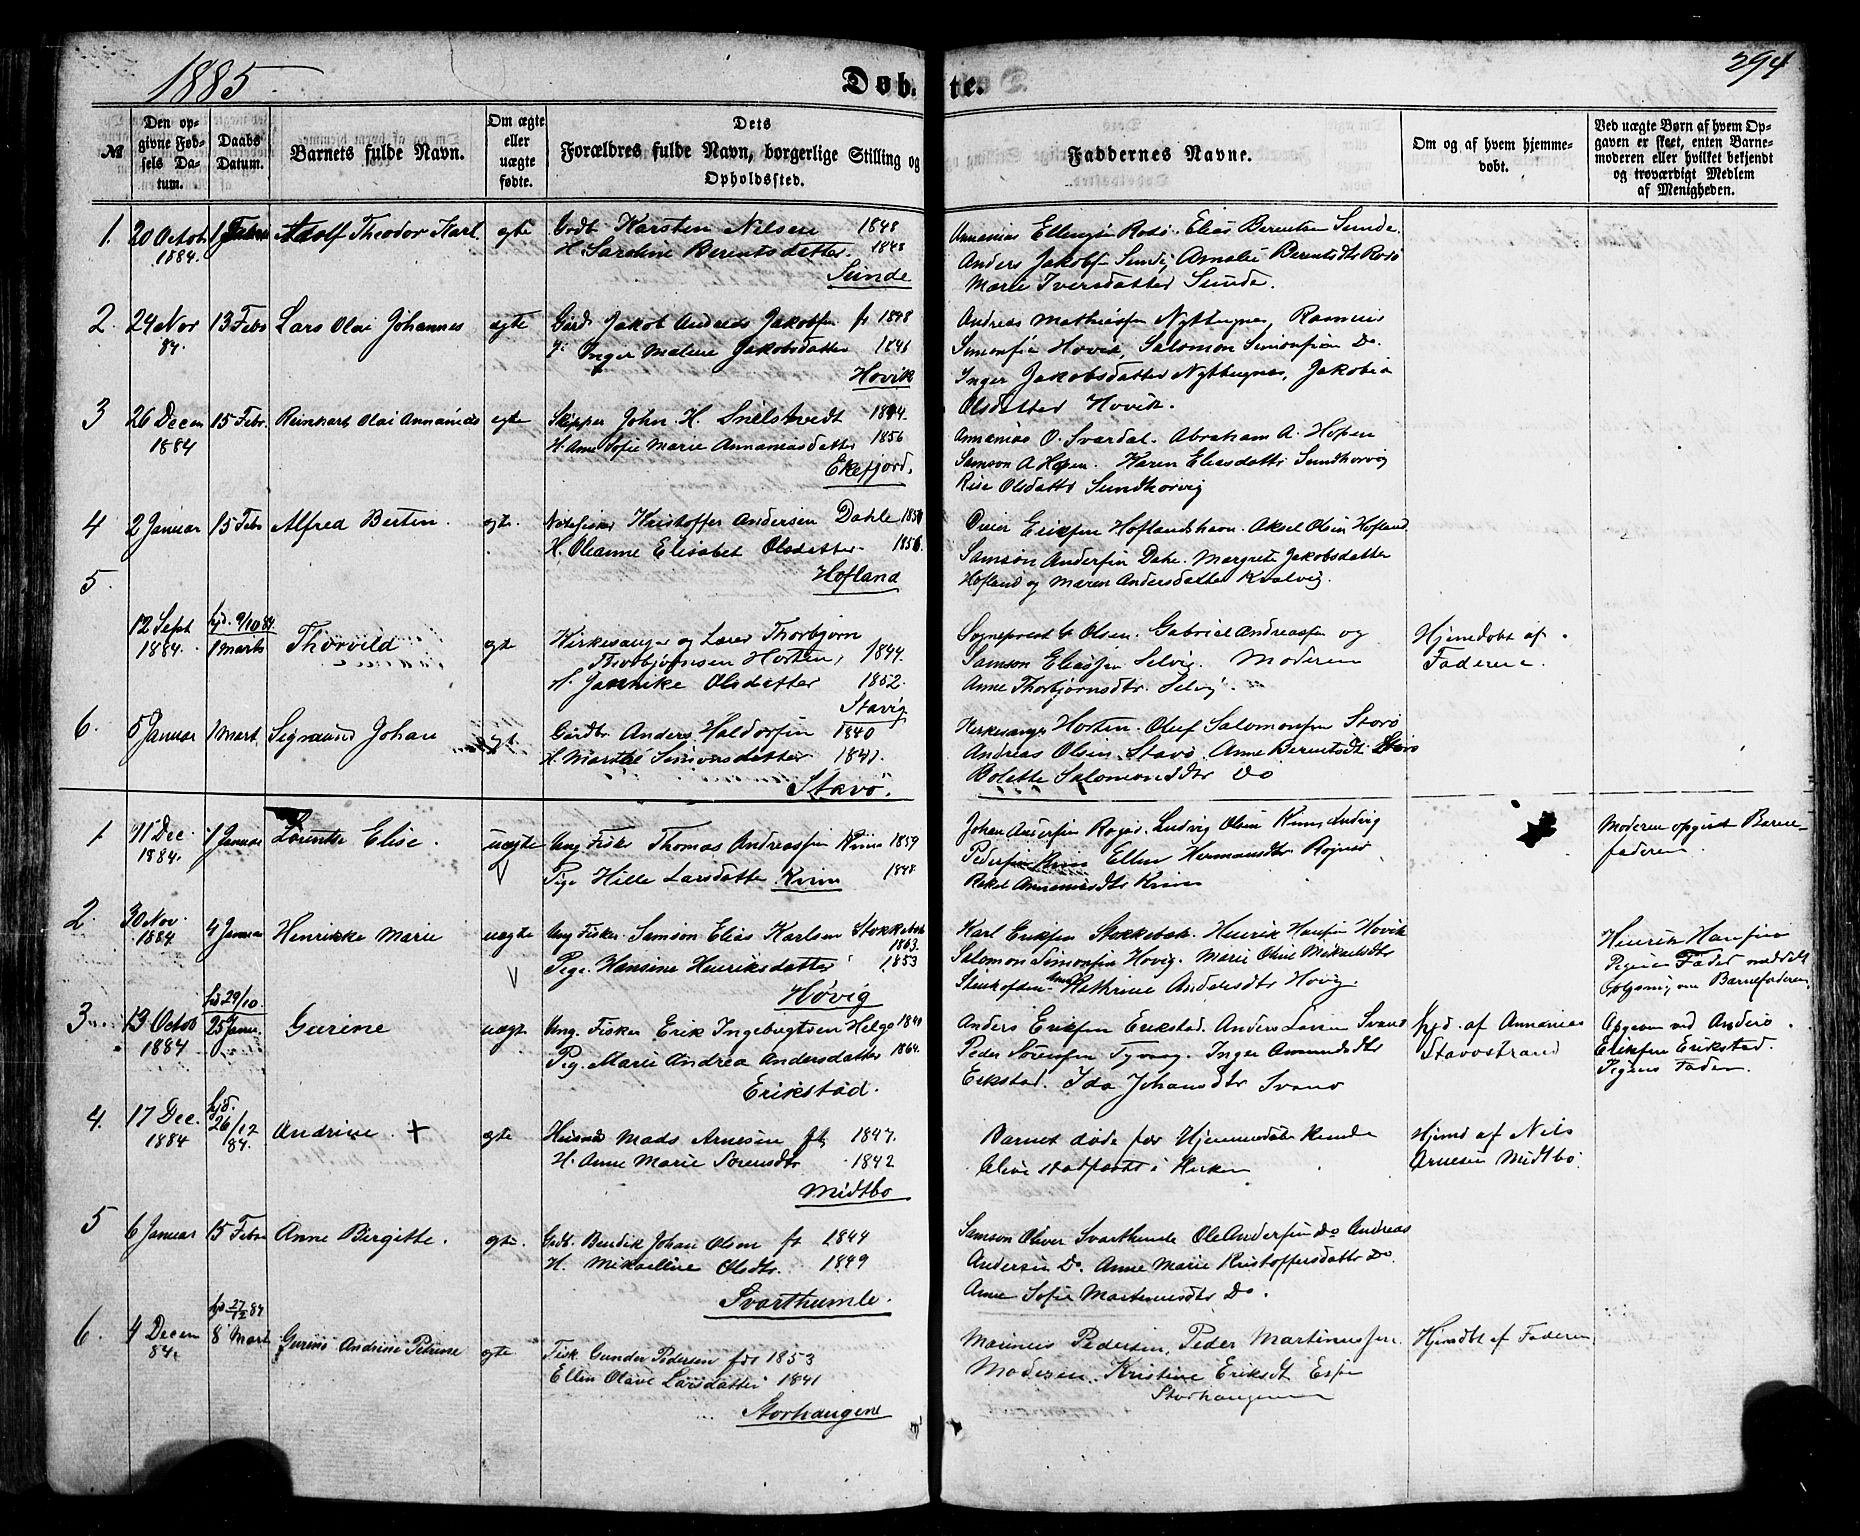 1885
Døb
te.
294
№
Den opgivne Fødsels Datum.
Daabs Datum.
Barnets fulde Navn.
Om ægte eller uægte fødte.
Dets
Forældres fulde Navn, borgerlige Stilling og
Opholdssted.
Faddernes Navne.
Om og af hvem hjemmedøbt.
Ved uægte Børn af hvem Opgaven er skeet, enten Barnemoderen eller hvilket bekjendt og troværdigt Medlem af Menigheden.
1. 20 Octob 1884. 1 Adolf Theodor Karl. egte Grdb. Karsten Nilsen 1848
H. Caroline Berentsdatter 1848
Sunde
Annanias Ellingsen Elias Berentsen Sunde.
Anders Jakobsen Sunde, Amalie Berentsdtr
Marie Iversdatter Sunde.
2. 24 Nov 84. 13 Febr Lars Olai Johannes egte Gård. Jakob Andreas Jakobsen f. 1848
Inger Malene Jakobsdatter 1846
Hovik
Andreas Mathiassen Rasmus
Simonsen Hovik, Salomon Simonsen Do.
Inger Jakobsdatter Jakobia
Olsdatter Hovik.
3 26 Decem 1884 15 Febr. Reinhart Olai Annanias egte Skipper John H. Snelstvedt 1844.
H. Anne Sofie Marie Annaniasdatter 1856
Ekefjord.
Annanias O. Svardal. Abraham A. Hopen
Samson A Hopen. Karen Eliasdattr
Olsdattr
4 2 Januar 15 Febr Alfred Berten. egte. Kristoffer Andersen Dahle
H. Oleanne Elisabet Olsdatter. 1856.
Hofland
Eriksen Hoflandshavn. Aksel Olsen Hofland
Samson Andersen Margrete Jakobsdatter
Hofland og Maren Andersdatter Kvalvig.
5. 12 Sept 1884. hjd. 9/10 84. 1 Marts Thorvild egte Kirkesanger og Lærer Thorbjørn
Thorbjørnsen Horten, 1844.
H. Jannike Olsdatter 1852.
Stavig
Sogneprest Olsen. Gabriel Andreassen og
Samson Eliassen Selvig. Moderen
Anne Thorbjørnsdtr. Selvig.
Hjemedøbt af
Faderen.
6. 5 Januar 1 Mart. Sigmund Johan egt. Gårdbr. Anders Haldorsen 1840
H. Marthe Simonsdatter 1841.
Stavø.
Kirkesangr Horten. Oluf Salomonsen Stavø
Andreas Olsen Stavø Anne Berentsdt.
Bolette Salomonsdtr Do
1 11 Dec. 1884. 1 Januar Elise. uægte Ung. Fisk. Thomas Andreassen 1859
Pige Hille Larsdatter Knim 1848.
Johan Andersen Ludvig Olsen
Pedersen Ellen Hermansdtr
Rakel Annaniasdtr
Moderen opgivet Barnefaderen.
2. 30 Nov. 1884 4 Januar Henrikke Marie uægte Ung. Fisker Samson Elias Karlsen 1863.
Pige. Hansine Henriksdatter 1853
Høvig
Karl Eriksen Stokkebæk. Henrik Hansen Høvik
Salomon Simonsen Hovig. Marie Oline Mikkelsdtr
Kathrine Andersdtr Hovig
Henrik Hansen
Pigens Fader meddelt
Oplysning om Barnefaderen
3. 13 Octob 1884 hjd 29/10. 25 Januar Gurine uægte Ung. Fisker Erik Ingebrigtsen Helge
Pig. Marie Andrea Andersdatter 1864.
Erikstad.
Anders Eriksen Erikstad. Anders Svanø
Peder Sørensen Inger Amundsdtr
Erikstad. Ida Johansdtr Svanø
hjd. af Annanias
Stavøstrand
Opgiven ved Anders
Eriksen Erikstad.
Pigens Fader.
4. 17 Dec. 1884 hjd. 26/12 84. Andrine. + egte Husm Mads Arnesen f. 1847.
H. Anne Marie Sørensdtr 1842
Midtbø
Barnet døde før Hjemmedåben kunde
blive stadfæstet i Kirken
Hjemd af Nils
Arnesen Midtbø.
5 6 Januar 15 Febr. Anne Birgitte. egte. Grdb. Bendik Johan Olsen f. 1844
H. Mikaeline Olsdtr. 1849
Svarthumle.
Samson Oliver Svarthumle Ole Andersen Do Andreas
Andersen Do. Anne Marie Kristoffersdattr Do
Anne Sofie Martinusdtr Do.
6. 4 Decem 84. hjd 27/12 84 8 Mart Andrine Petrine egte Fisk. Gunder Pedersen fdt 1853
Ellen Olave Larsdatter 1841
Storhaugene
Marinus Pedersen, Peder Martinussen.
Moderen. Kristine Eriksdt
Storhaugene
Hjemdbt af Faderen